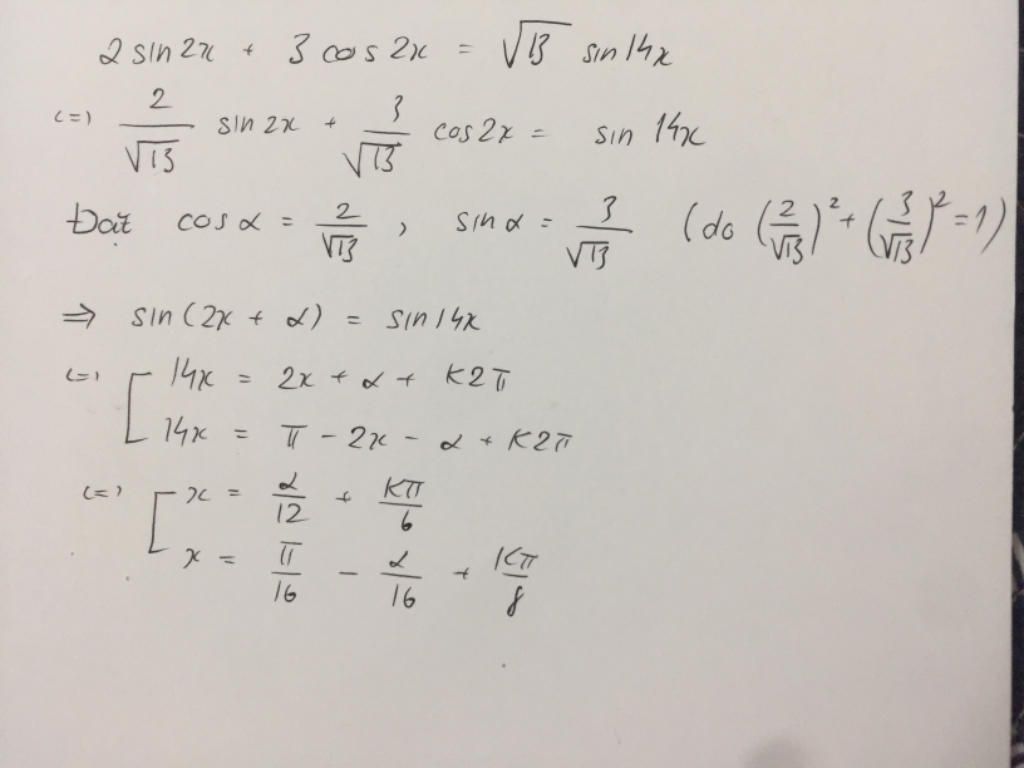 2 sin 2x + 3 cos 2x = √13 sin 14x
<=> 2/√13 sin 2x + 3/√13 cos 2x = sin 14x
Đặt cos α = 2/√13 , sin α = 3/√13 (do (2/√13)² + (3/√13)² = 1)
=> sin (2x + α) = sin 14x
<=> [ 14x = 2x + α + K2π
14x = π - 2x - α + K2π
<=> [ x = α/12 + Kπ/6
x = π/16 - α/16 + Kπ/8